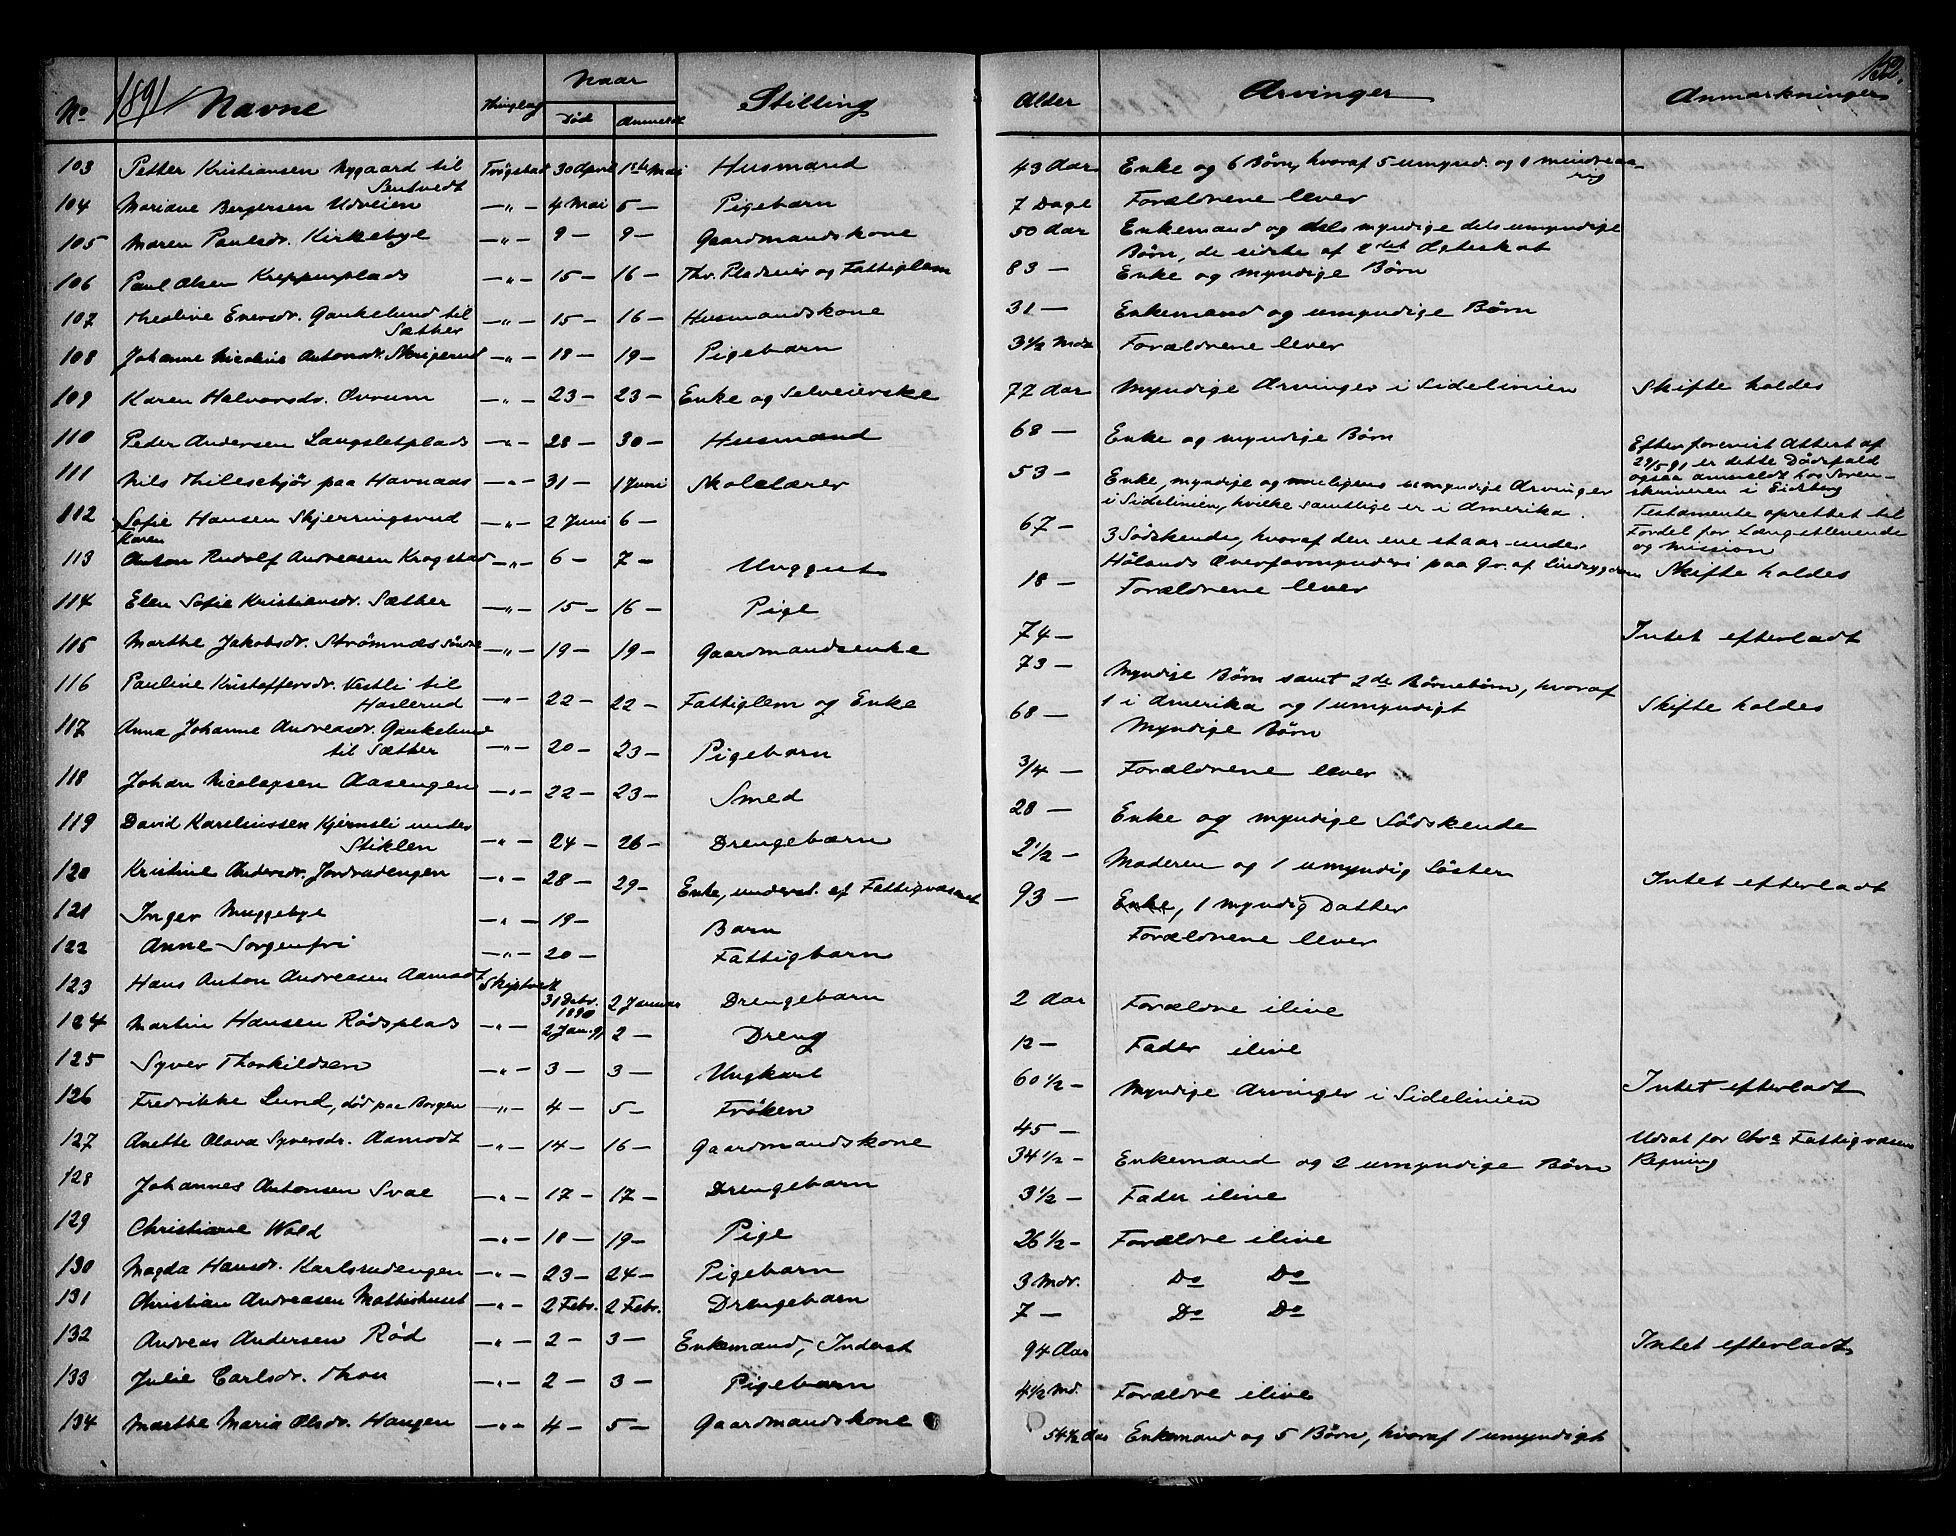 152.
1891
No Navne Thinglag Naar Stilling Alder Arvinger Anmærkninger
Død Anmeldt
103 Petter Kristiansen Nygaard til Trøgstad 30 April 1ste Mai Husmand 43 Aar Enke og 6 Børn, hvoraf 5 umynd. og 1 mindreaa-
Sentvedt rig
104 Mariane Bergersen Udveien —"— 4 Mai 5 — Pigebarn 7 Dage Forældrene lever
105 Maren Paulsdr. Kirkebye —"— 9 — 9 — Gaardmandskone 50 Aar Enkemand og dels myndige dels umyndige
Børn, de sidste af 2det Ægteskab
106 Paul Olsen Kreppenplads —"— 15 — 16 — Fhv. Pladseier og Fattiglem 83 — Enke og myndige Børn
107 Theoline Eversdr. Gaukelund til —"— 15 — 16 — Husmandskone 31 — Enkemand og umyndige Børn
Sæther
108 Johanne Nicoline Antonsdr. Skrigerud —"— 18 — 19 — Pigebarn 3 1/2 Mdr Forældrene lever
109 Karen Halvorsdr. Overum —"— 23 — 23 — Enke og Selveierske 77 Aar Myndige Arvinger i Sidelinien Skifte holdes
110 Peder Andersen Langsletplads —"— 28 — 30 — Husmand 68 — Enke og myndige Børn Efter forevist Attest af
29/5 91 er dette Dødsfald
ogsaa anmeldt hos Soren-
skriveren i Eidsberg
111 Nils Thilesehjør paa Havnaas —"— 31 — 1 Juni Skolelærer 53 — Enke, myndige og muligens umyndige Arvinger
i Sidelinien, hvilke samtlige er i Amerika. Testamente oprettet til
Fordel for Længstlevende
og Mission
112 Sofie Hansen Skjerringsrud —"— 2 Juni 6 — 67 — 3 Sødskende, hvoraf den ene staar under
Karen Hølands Overformynderi paa Gr. af Sindssygdom Skifte holdes
113 Anton Rudolf Andreasen Krogstad —"— 6 — 7 — Unggut 18 — Forældrene lever
114 Elen Sofie Kristiansdr. Sæther —"— 15 — 16 — Pige 74 — Intet efterladt
115 Marthe Jakobsdr. Strømnæs Søndre —"— 19 — 19 — Gaardmandsenke 73 — Myndige Børn samt 2de Børnebørn, hvoraf
1 i Amerika og 1 umyndigt Skifte holdes
116 Pauline Kristoffersdr. Vestli til —"— 22 — 22 — Fattiglem og Enke 68 — Myndige Børn
Haslerud
117 Anna Johanne Andreasdr. Gaukelund —"— 20 — 23 — Pigebarn 3/4 — Forældrene lever
til Sæther
118 Johan Nicolaysen Aasengen —"— 22 — 23 — Smed 28 — Enke og myndige Sødskende
119 David Karelinssen Kjernsli under —"— 24 — 26 — Drengebarn 2 1/2 — Moderen og 1 umyndig Søster
Stiklen
120 Kristine Andersdr. Jordrudengen —"— 28 — 29 — Enke, underst. af Fattigvæsenet 93 — Enke, 1 myndig Datter Intet efterladt
121 Inger Muggebye —"— 19 — Barn Forældrene lever
122 Anne Sorgenfri —"— 20 — Fattigbarn
123 Hans Anton Andreasen Aamodt Skiptvedt 31 Debr. 1890 2 Januar Drengebarn 2 Aar Forældre ilive
124 Martin Hansen Rødsplads —"— 2 Jan. 91 2 — Dreng 12 — Fader ilive
125 Syver Thorkildsen —"— 3 — 3 — Ungkarl 60 1/2 — Myndige Arvinger i Sidelinien Intet efterladt
126 Fredrikke Lund, død paa Borgen —"— 4 — 5 — Frøken 45 — Udsat for Chra Fattigvæsens
Regning
127 Anette Olava Syversdr. Aamodt —"— 14 — 16 — Gaardmandskone 34 1/2 — Enkemand og 2 umyndige Børn
128 Johannes Antonsen Svae —"— 17 — 17 — Drengebarn 3 1/2 — Fader ilive
129 Christiane Wold —"— 18 — 19 — Pige 26 1/2 — Forældre ilive
130 Magda Hansdr. Karlsrudengen —"— 23 — 24 — Pigebarn 3 Mdr. Do Do
131 Christian Andreasen Mattishuset —"— 2 Febr. 2 Febr. Drengebarn 7 — Do Do
132 Andreas Andersen Rød —"— 2 — 3 — Enkemand, Inderst 94 Aar Intet efterladt
133 Julie Carlsdr. Thon —"— 2 — 3 — Pigebarn 4 1/2 Md. Forældre ilive
134 Marthe Maria Olsdr. Haugen —"— 4 — 5 — Gaardmandskone 54 1/2 Aar Enkemand og 5 Børn, hvoraf 1 umyndigt